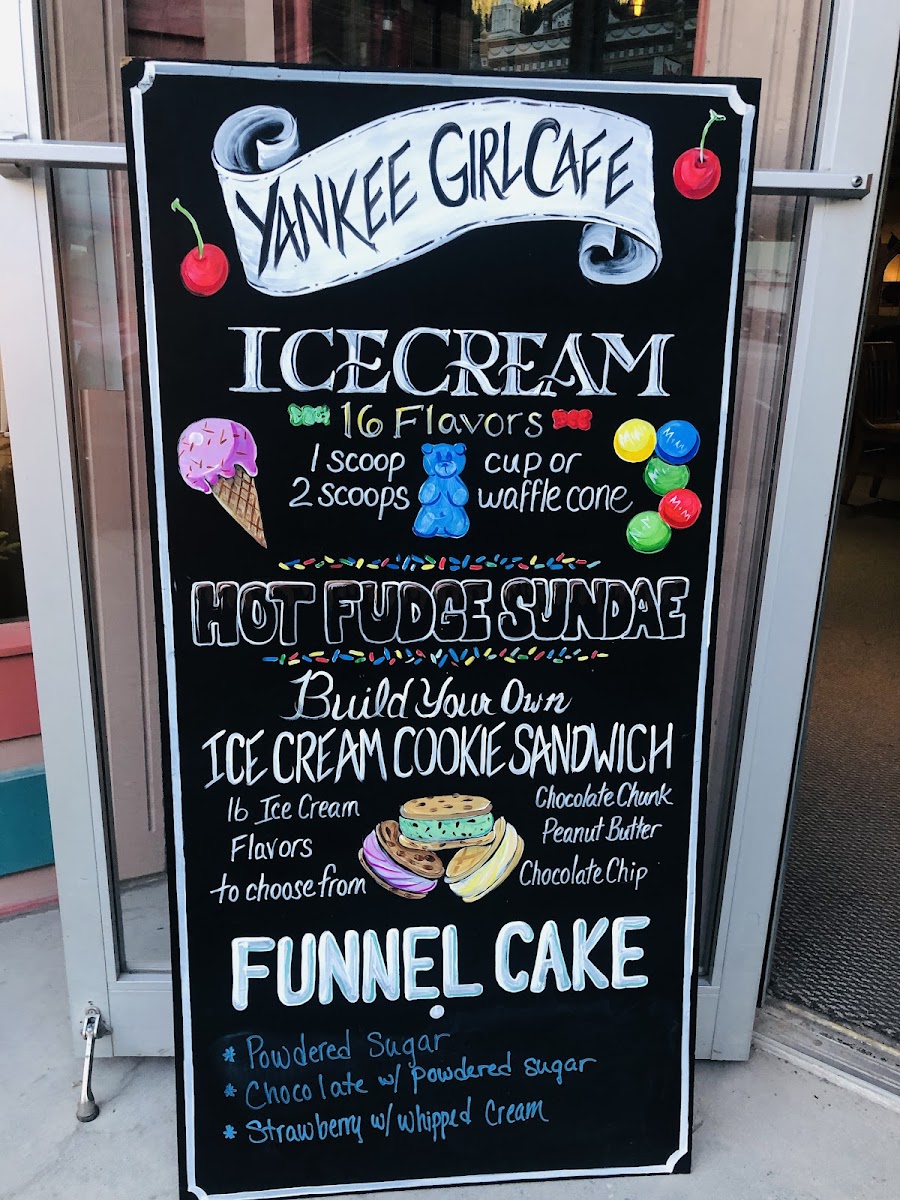 YANKEE GIRL CAFE
ICE CREAM
16 Flavors
1 scoop cup or
2 scoops waffle cone
M&M
M&M
HOT FUDGE SUNDAE
Build Your Own
ICE CREAM COOKIE SANDWICH
16 Ice Cream
Flavors
to choose from
Chocolate Chunk
Peanut Butter
Chocolate Chip
FUNNEL CAKE
* Powdered Sugar
* Chocolate w/ powdered sugar
* Strawberry w/ whipped cream